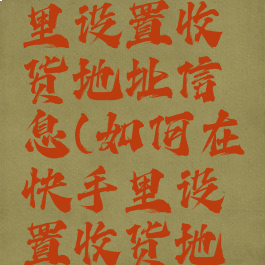 里设置收
货地址信
息(如何在
快手里设
置收货地